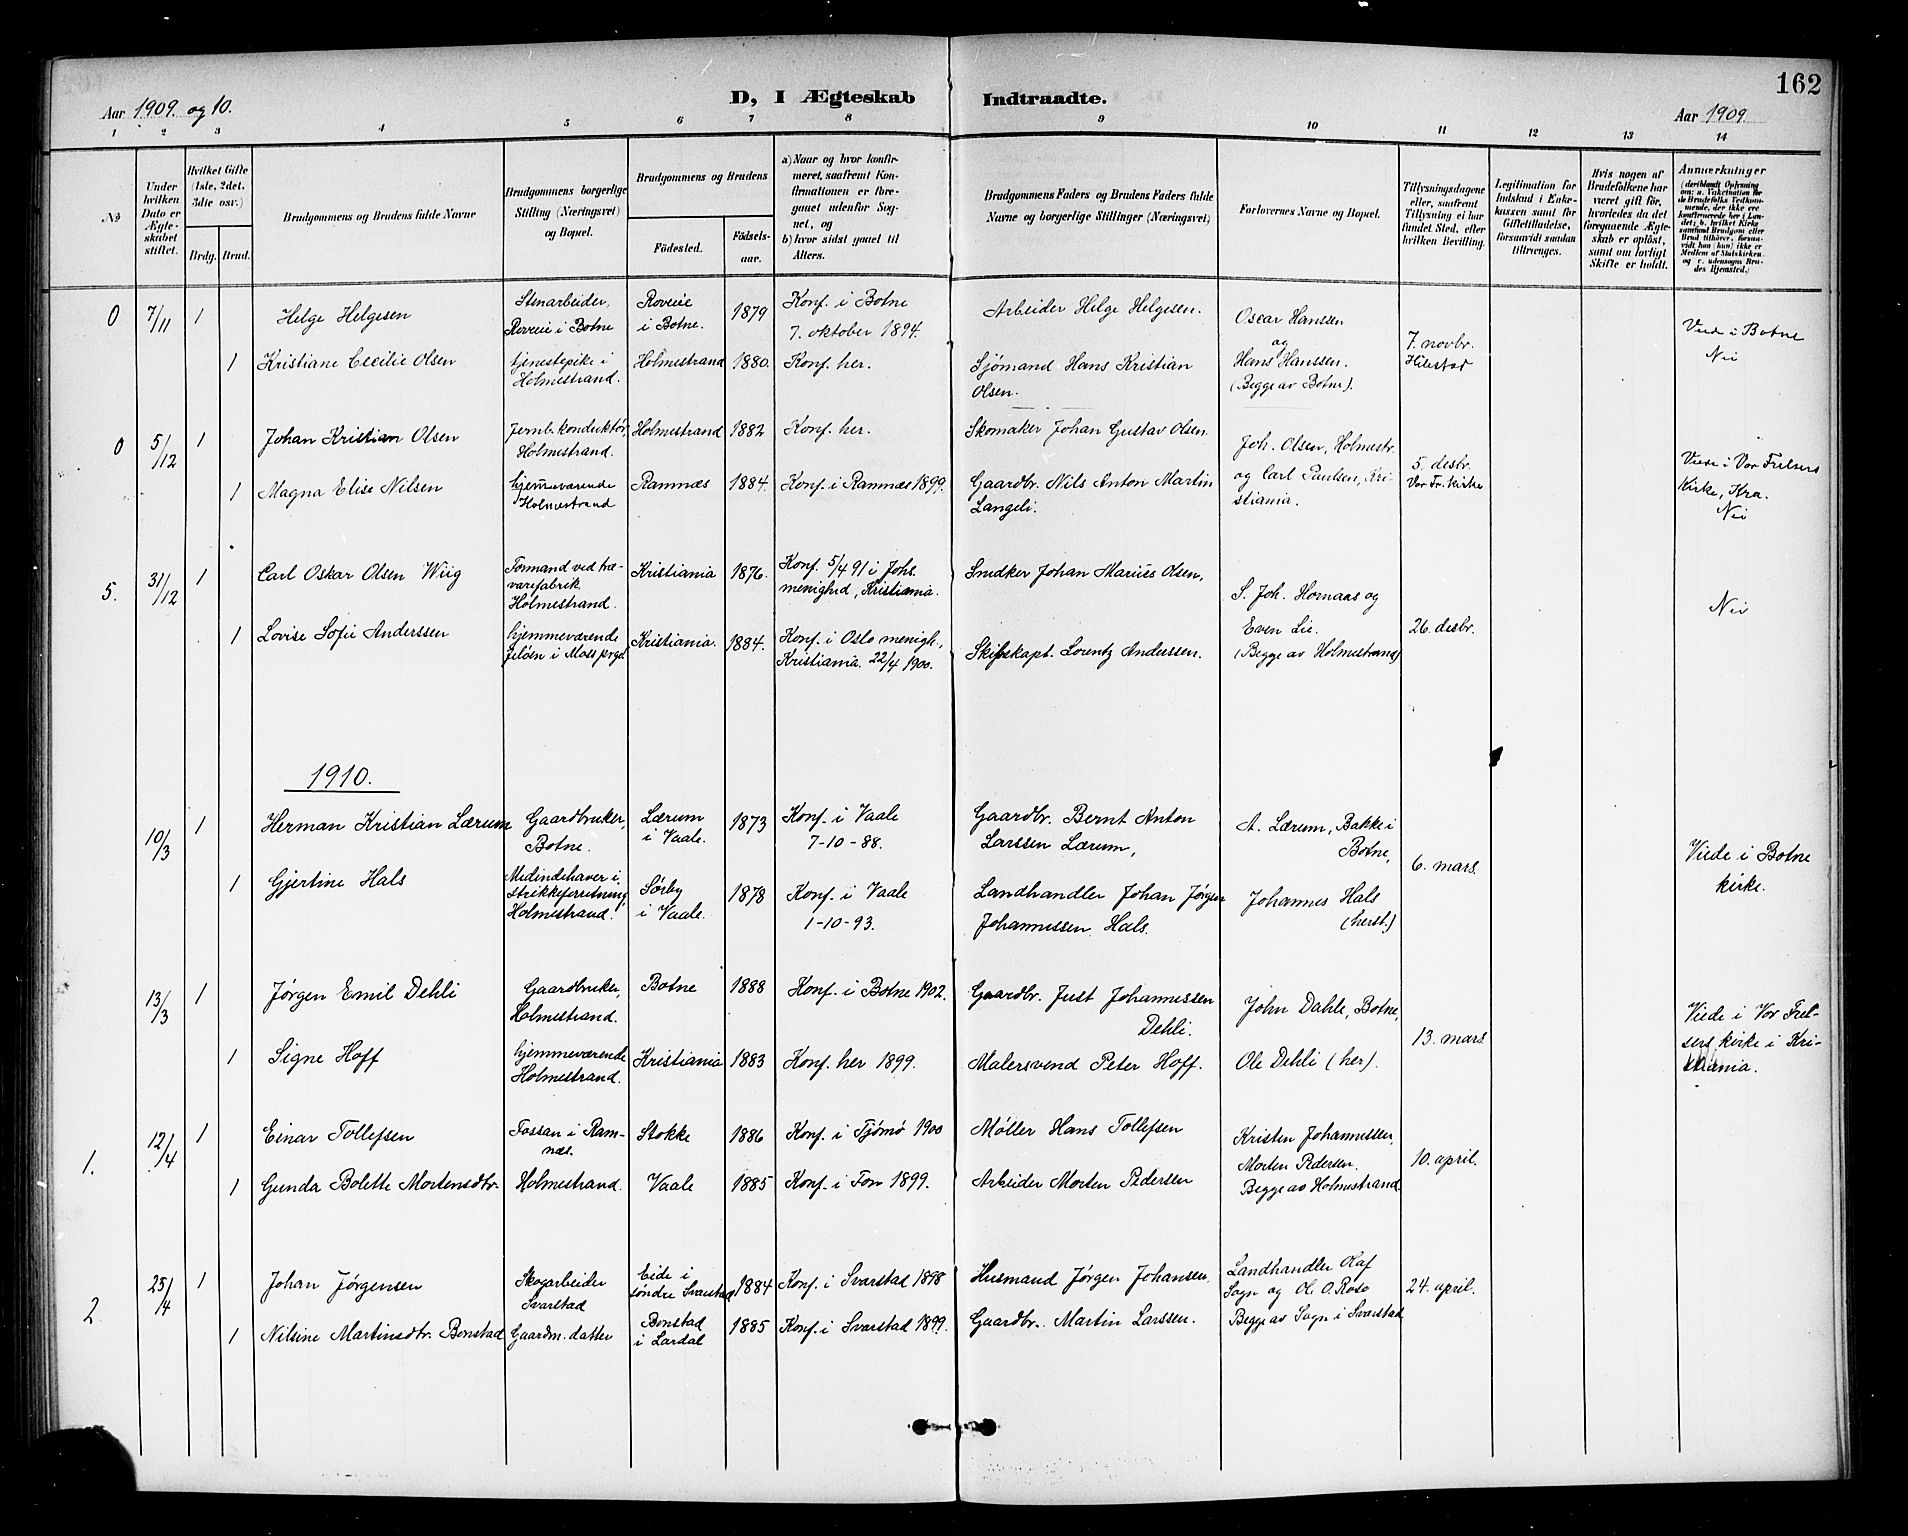 162
Aar 1909. og 10.
D, I Ægteskab Indtraadte.
Aar 1909.
1 2 3 4 5 6 7 8 9 10 11 12 13 14
No
Under hvilken Dato er Ægteskabet stiftet.
Hvilket Gifte (1ste, 2det, 3die osv.)
Brdg. Brud.
Brudgommens og Brudens fulde Navne
Brudgommens borgerlige Stilling (Næringsvei) og Bopæl.
Brudgommens og Brudens
Fødested.
Fødsels-aar.
a) Naar og hvor konfirmeret, saafremt Konfirmationen er foregaaet udenfor Sognet, og
b) hvor sidst gaaet til Alters.
Brudgommens Faders og Brudens Faders fulde Navne og borgerlige Stillinger (Næringsvei)
Forlovernes Navne og Bopæl.
Tillysningsdagene eller, saafremt Tillysning ei har fundet Sted, efter hvilken Bevilling.
Legitimation for Indskud i Enkekassen samt for Giftetilladelse, forsaavidt saadan tiltrænges.
Hvis nogen af Brudefolkene har været gift før, hvorledes da det foregaaende Ægteskab er opløst, samt om lovligt Skifte er holdt.
Anmærkninger
0 7/11 1 Helge Helgesen Stenarbeider, Roveie i Botne Roveie i Botne. 1879 Konf. i Botne 7. oktober 1894. Arbeider Helge Helgesen. Oscar Hanssen og Hans Hanssen. (Begge av Botne). 7. novbr. Hillestad Viede i Botne
1 Kristiane Cecilie Olsen tjenestepike i Holmestrand. Holmestrand 1880. Konf. her. Sjømand Hans Kristian Olsen. Nei
0 5/12 1 Johan Kristian Olsen Jernb. konduktør, Holmestrand. Holmestrand 1882 Konf. her. Skomaker Johan Gustav Olsen. Joh. Olsen, Holmestr. og Carl Paulsen, Kristiania. 5. desbr. Vor Fr. kirke Viede i Vor Frelsers Kirke, Kra.
1 Magna Elise Nilsen hjemmeværende Holmestrand Ramnæs 1884. Konf. i Ramnæs 1899. Gaardbr. Nils Anton Martin Langeli. Nei
5. 31/12 1 Carl Oskar Olsen Wiig Formand ved trævarefabrik. Holmestrand. Kristiania 1876. Konf. 5/4 91 i Johs. menighed, Kristiania. Snedker Johan Marius Olsen, S. Joh. Hornaas og Even Lie. (Begge av Holmestrand) 26. desbr. Nei
1 Lovise Sofie Anderssen hjemmeværende Jeløen i Moss prgd. Kristiania. 1884. Konf. i Oslo menigh., Kristiania 22/4 1900. Skibskapt. Lorentz Anderssen.
1910.
10/3 1 Herman Kristian Lærum Gaardbruker, Botne. Lærum i Vaale. 1873 Konf. i Vaale 7-10-88. Gaardbr. Bernt Anton Larssen Lærum, A. Lærum, Bakke i Botne, 6. mars Viede i Botne kirke.
1 Gjertine Hals Medindehaver i strikkeforretning, Holmestrand. Sørby i Vaale. 1878 Konf. i Vaale 1-10-93. Landhandler Johan Jørgen Johannessen Hals. Johannes Hals (herst.)
13/3 1 Jørgen Emil Dehli Gaardbruker, Holmestrand. Botne 1888 Konf. i Botne 1902. Gaardbr. Just Johannessen Dehli. John Dahle, Botne, 13. mars Viede i Vor Frelsers kirke i Kristiania.
1 Signe Hoff hjemmeværende Holmestrand. Kristiania 1883 Konf. her 1899. Malersvend Peter Hoff. Ole Dehli (her).
1. 12/4 1 Einar Tollefsen Fossan i Ramnæs. Stokke 1886 Konf. i Tjømø 1900 Møller Hans Tollefsen Kristen Johannessen, Morten Pedersen. Begge av Holmestrand 10. april.
1 Gunda Bolette Mortensdtr. Holmestrand. Vaale 1885 Konf. i Fon 1899. Arbeider Morten Pedersen
2. 25/4 1 Johan Jørgensen Skogarbeider Svarstad Eide i søndre Svarstad 1884 Konf. i Svarstad 1898 Husmand Jørgen Johansen. Landhandler Olaf Sogn og Ole O. Rose Begge av Sogn i Svarstad 24. april.
1 Nilsine Martinsdtr. Bonstad Gaardm. datter Bonstad i Lardal 1885 Konf. i Svarstad 1899. Gaardbr. Martin Larssen.